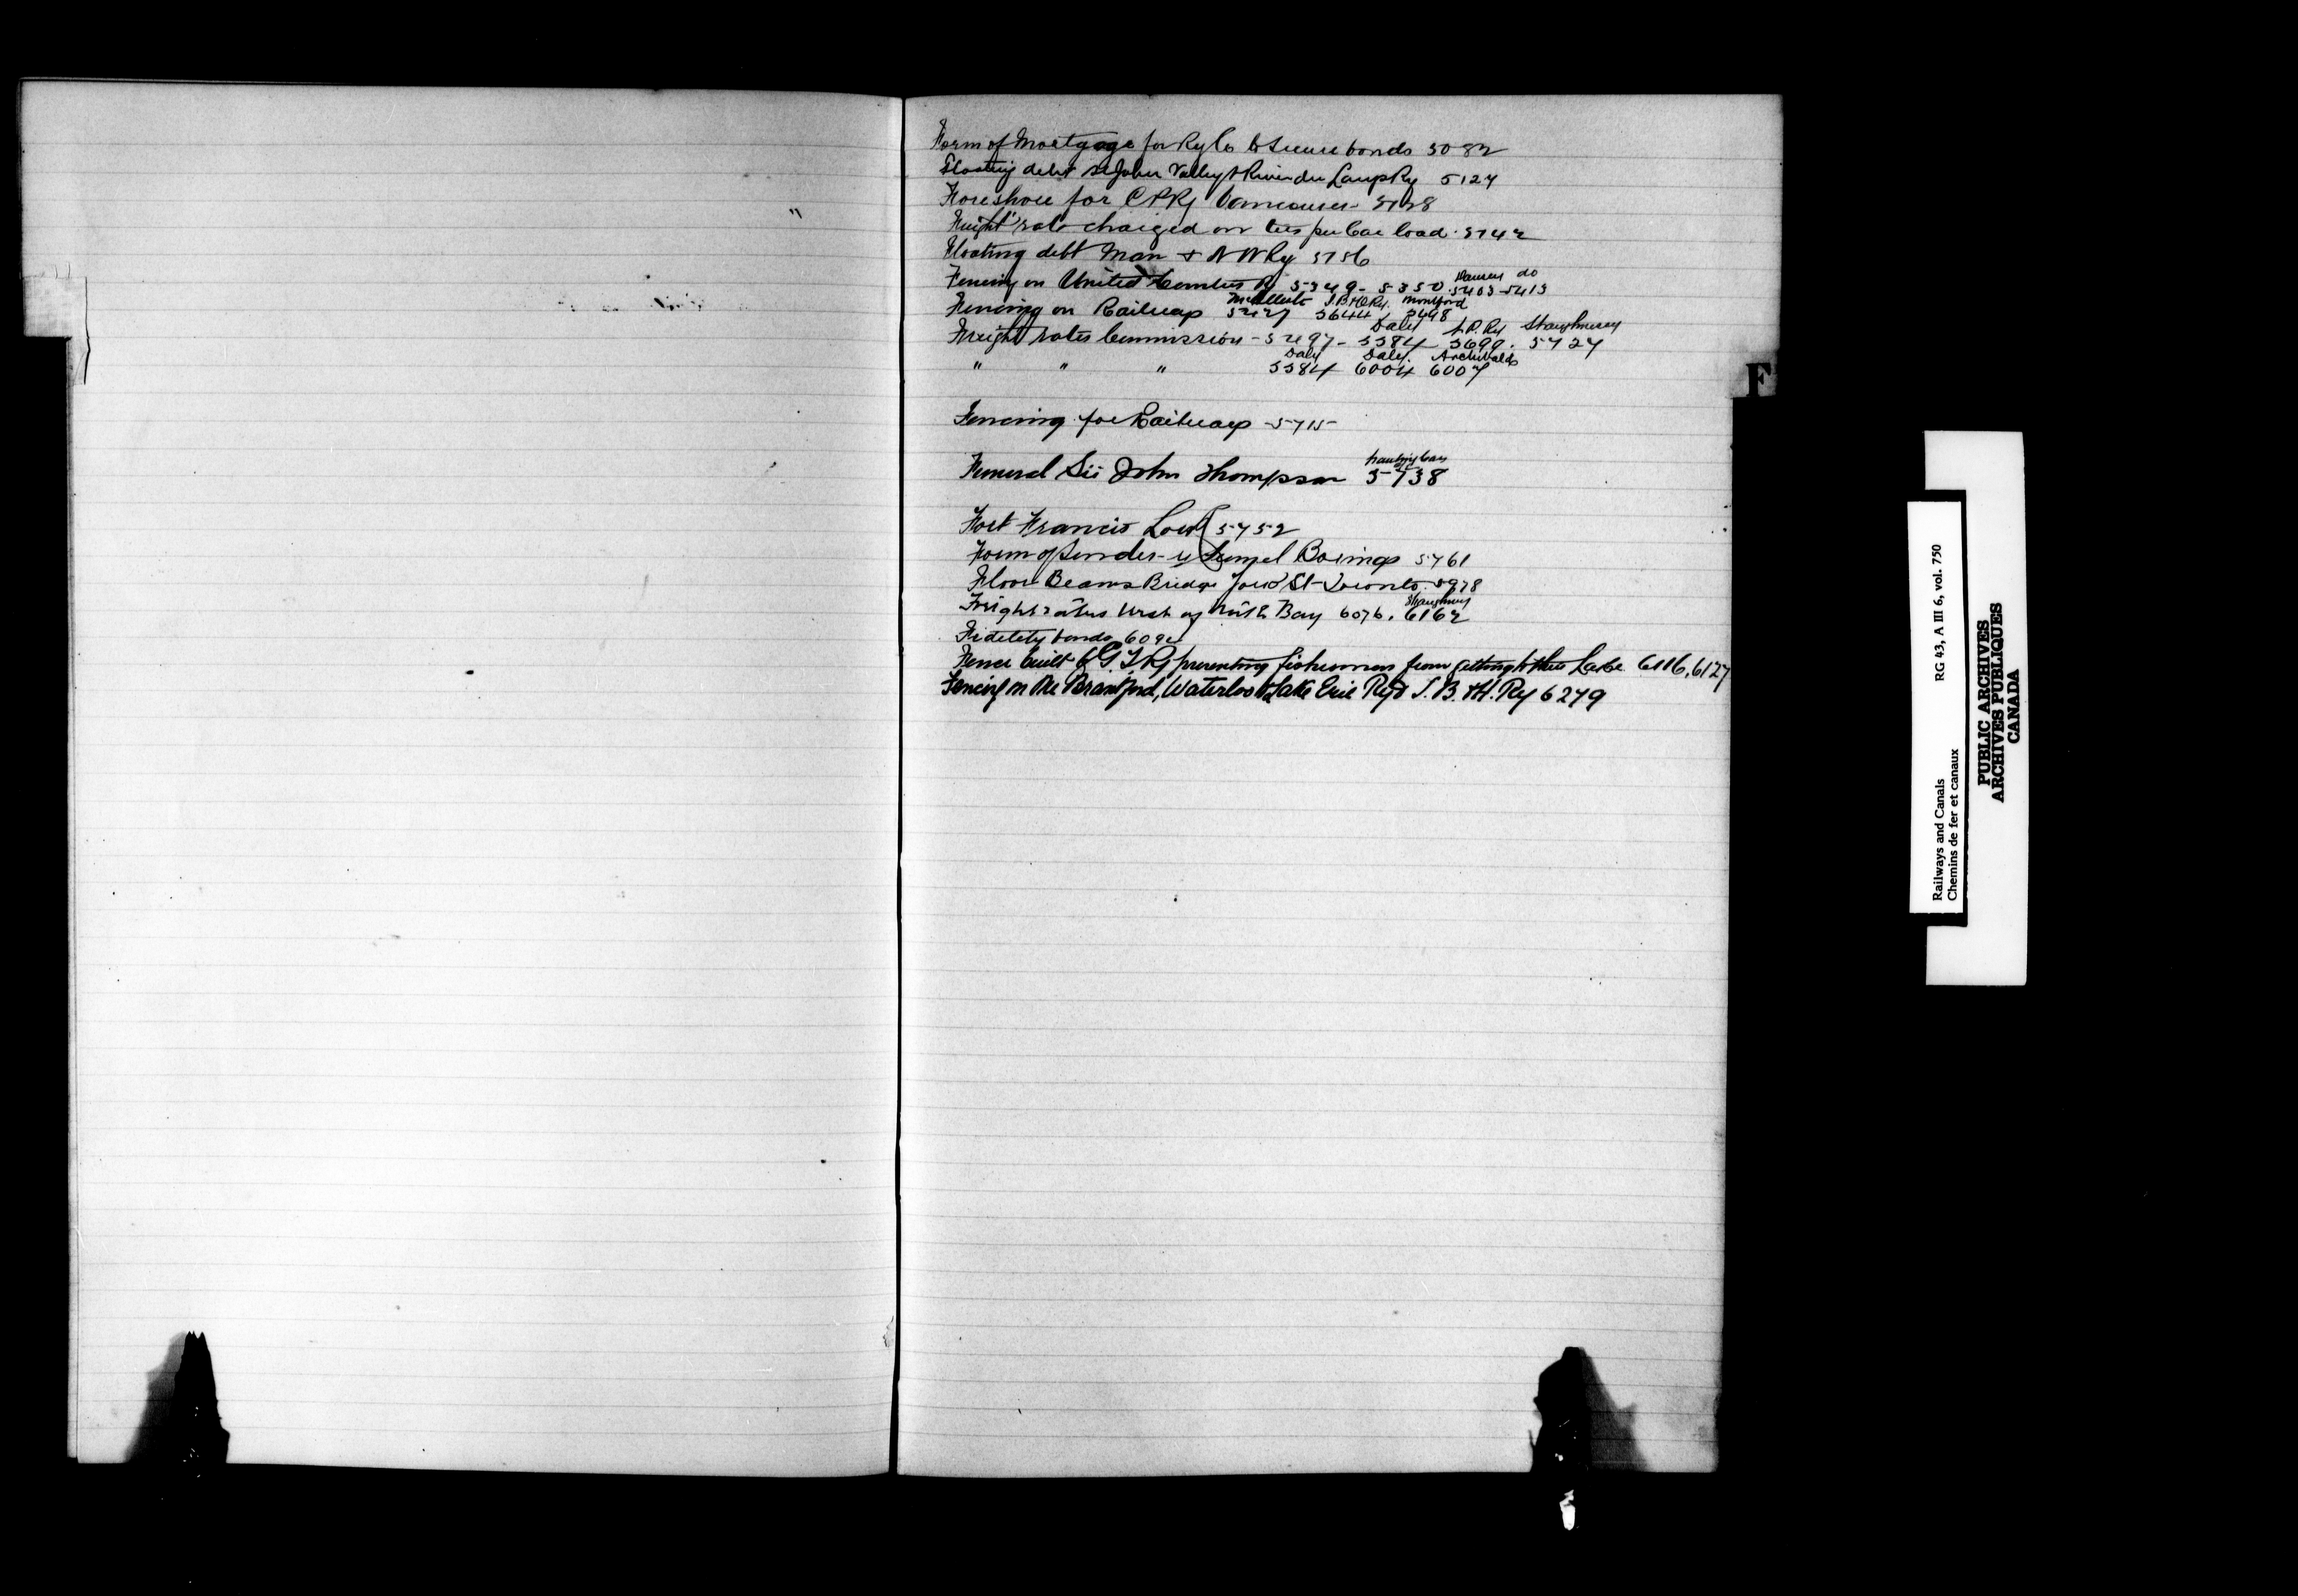 Form of Mortgage for Ry Co to secure bonds 5082
Floating debt St John Valley & River du Loup Ry 5124
Foreshore for C P Ry Vancouver 5128
Freight rate charged on ties per Car load 5142
Floating debt Man & N W Ry 5156
do
Fencing on United Counties Ry 5349 - 5350 . 5403 - 5413
T.B.&H.Ry. Montford
Fencing on Railways 5427 5644 5698
Daly C.P. Ry Shaughnessy
Freight rates Commission - 5497 - 5584 5699 . 5727
Daly Daly. Archibald
" " " 5584 6004 6007
Fencing for Railways 5715
hauling Cars
Funeral Sir John Thompson 5738
Fort Francis Lock 5752
Form of tender - Tunnel Borings 5761
Floor Beams Bridge York St Toronto 5978
Shaughnessy
Freight rates West of North Bay 6076. 6162
Fidelity bonds 6094
Fence built by G.T.Ry preventing fishermen from getting to the Lake 6116, 6127
Fencing on the Brantford, Waterloo & Lake Erie Ry & T. B. & H. Ry 6279
F
Railways and Canals RG 43, A III 6, vol. 750
Chemins de fer et canaux
PUBLIC ARCHIVES
ARCHIVES PUBLIQUES
CANADA